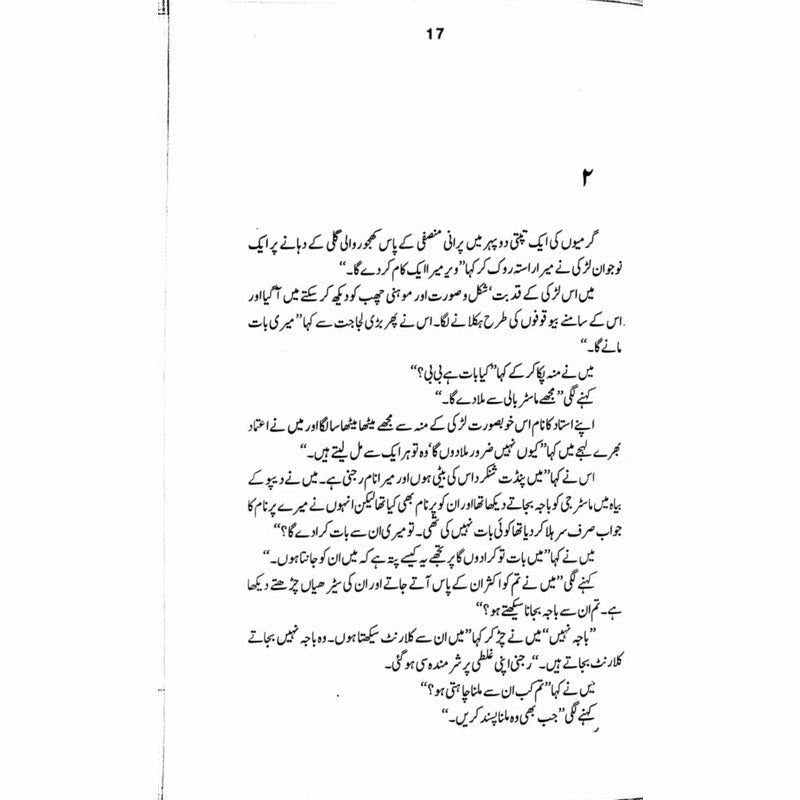 17
۲
گرمیوں کی ایک تپتی دوپہر میں پرانی منصفی کے پاس کھجور والی گلی کے دہانے پر ایک
نوجوان لڑکی نے میرا راستہ روک کر کہا ”ویر میرا ایک کام کر دے گا۔“
میں اس لڑکی کے قد بت‘ شکل و صورت اور موہنی چھب کو دیکھ کر سکتے میں آ گیا اور
اس کے سامنے بیوقوفوں کی طرح ہکلانے لگا۔ اس نے پھر بڑی لجاجت سے کہا ”میری بات
مانے گا۔“
میں نے منہ پکا کر کے کہا ”کیا بات ہے بی بی؟“
کہنے لگی ”مجھے ماسٹر بالی سے ملا دے گا۔“
اپنے استاد کا نام اس خوبصورت لڑکی کے منہ سے مجھے میٹھا میٹھا سا لگا اور میں نے اعتماد
بھرے لہجے میں کہا ”کیوں نہیں ضرور ملا دوں گا‘ وہ تو ہر ایک سے مل لیتے ہیں۔“
اس نے کہا ”میں پنڈت شنکر داس کی بیٹی ہوں اور میرا نام رجنی ہے۔ میں نے دیپو کے
بیاہ میں ماسٹر جی کو باجہ بجاتے دیکھا تھا اور ان کو پرنام بھی کیا تھا لیکن انہوں نے میرے پرنام کا
جواب صرف سر ہلا کر دیا تھا کوئی بات نہیں کی تھی۔ تو میری ان سے بات کرا دے گا؟“
میں نے کہا ”میں بات تو کرا دوں گا پر تجھے یہ کیسے پتہ ہے کہ میں ان کو جانتا ہوں۔“
کہنے لگی ”میں نے تم کو اکثر ان کے پاس آتے جاتے اور ان کی سیڑھیاں چڑھتے دیکھا
ہے۔ تم ان سے باجہ بجانا سیکھتے ہو؟“
”باجہ نہیں“ میں نے چڑ کر کہا ”میں ان سے کلارنٹ سیکھتا ہوں۔ وہ باجہ نہیں بجاتے
کلارنٹ بجاتے ہیں۔“ رجنی اپنی غلطی پر شرمندہ سی ہو گئی۔
میں نے کہا ”تم کب ان سے ملنا چاہتی ہو؟“
کہنے لگی ”جب بھی وہ ملنا پسند کریں۔“